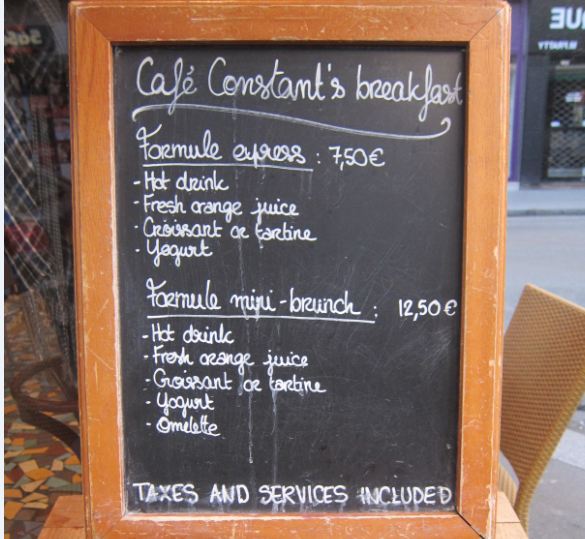 Café Constant's breakfast
Formule express : 7,50€
- Hot drink
- Fresh orange juice
- Croissant or tartine
- Yogurt
Formule mini-brunch : 12,50€
- Hot drink
- Fresh orange juice
- Croissant or tartine
- Yogurt
- Omelette
TAXES AND SERVICES INCLUDED